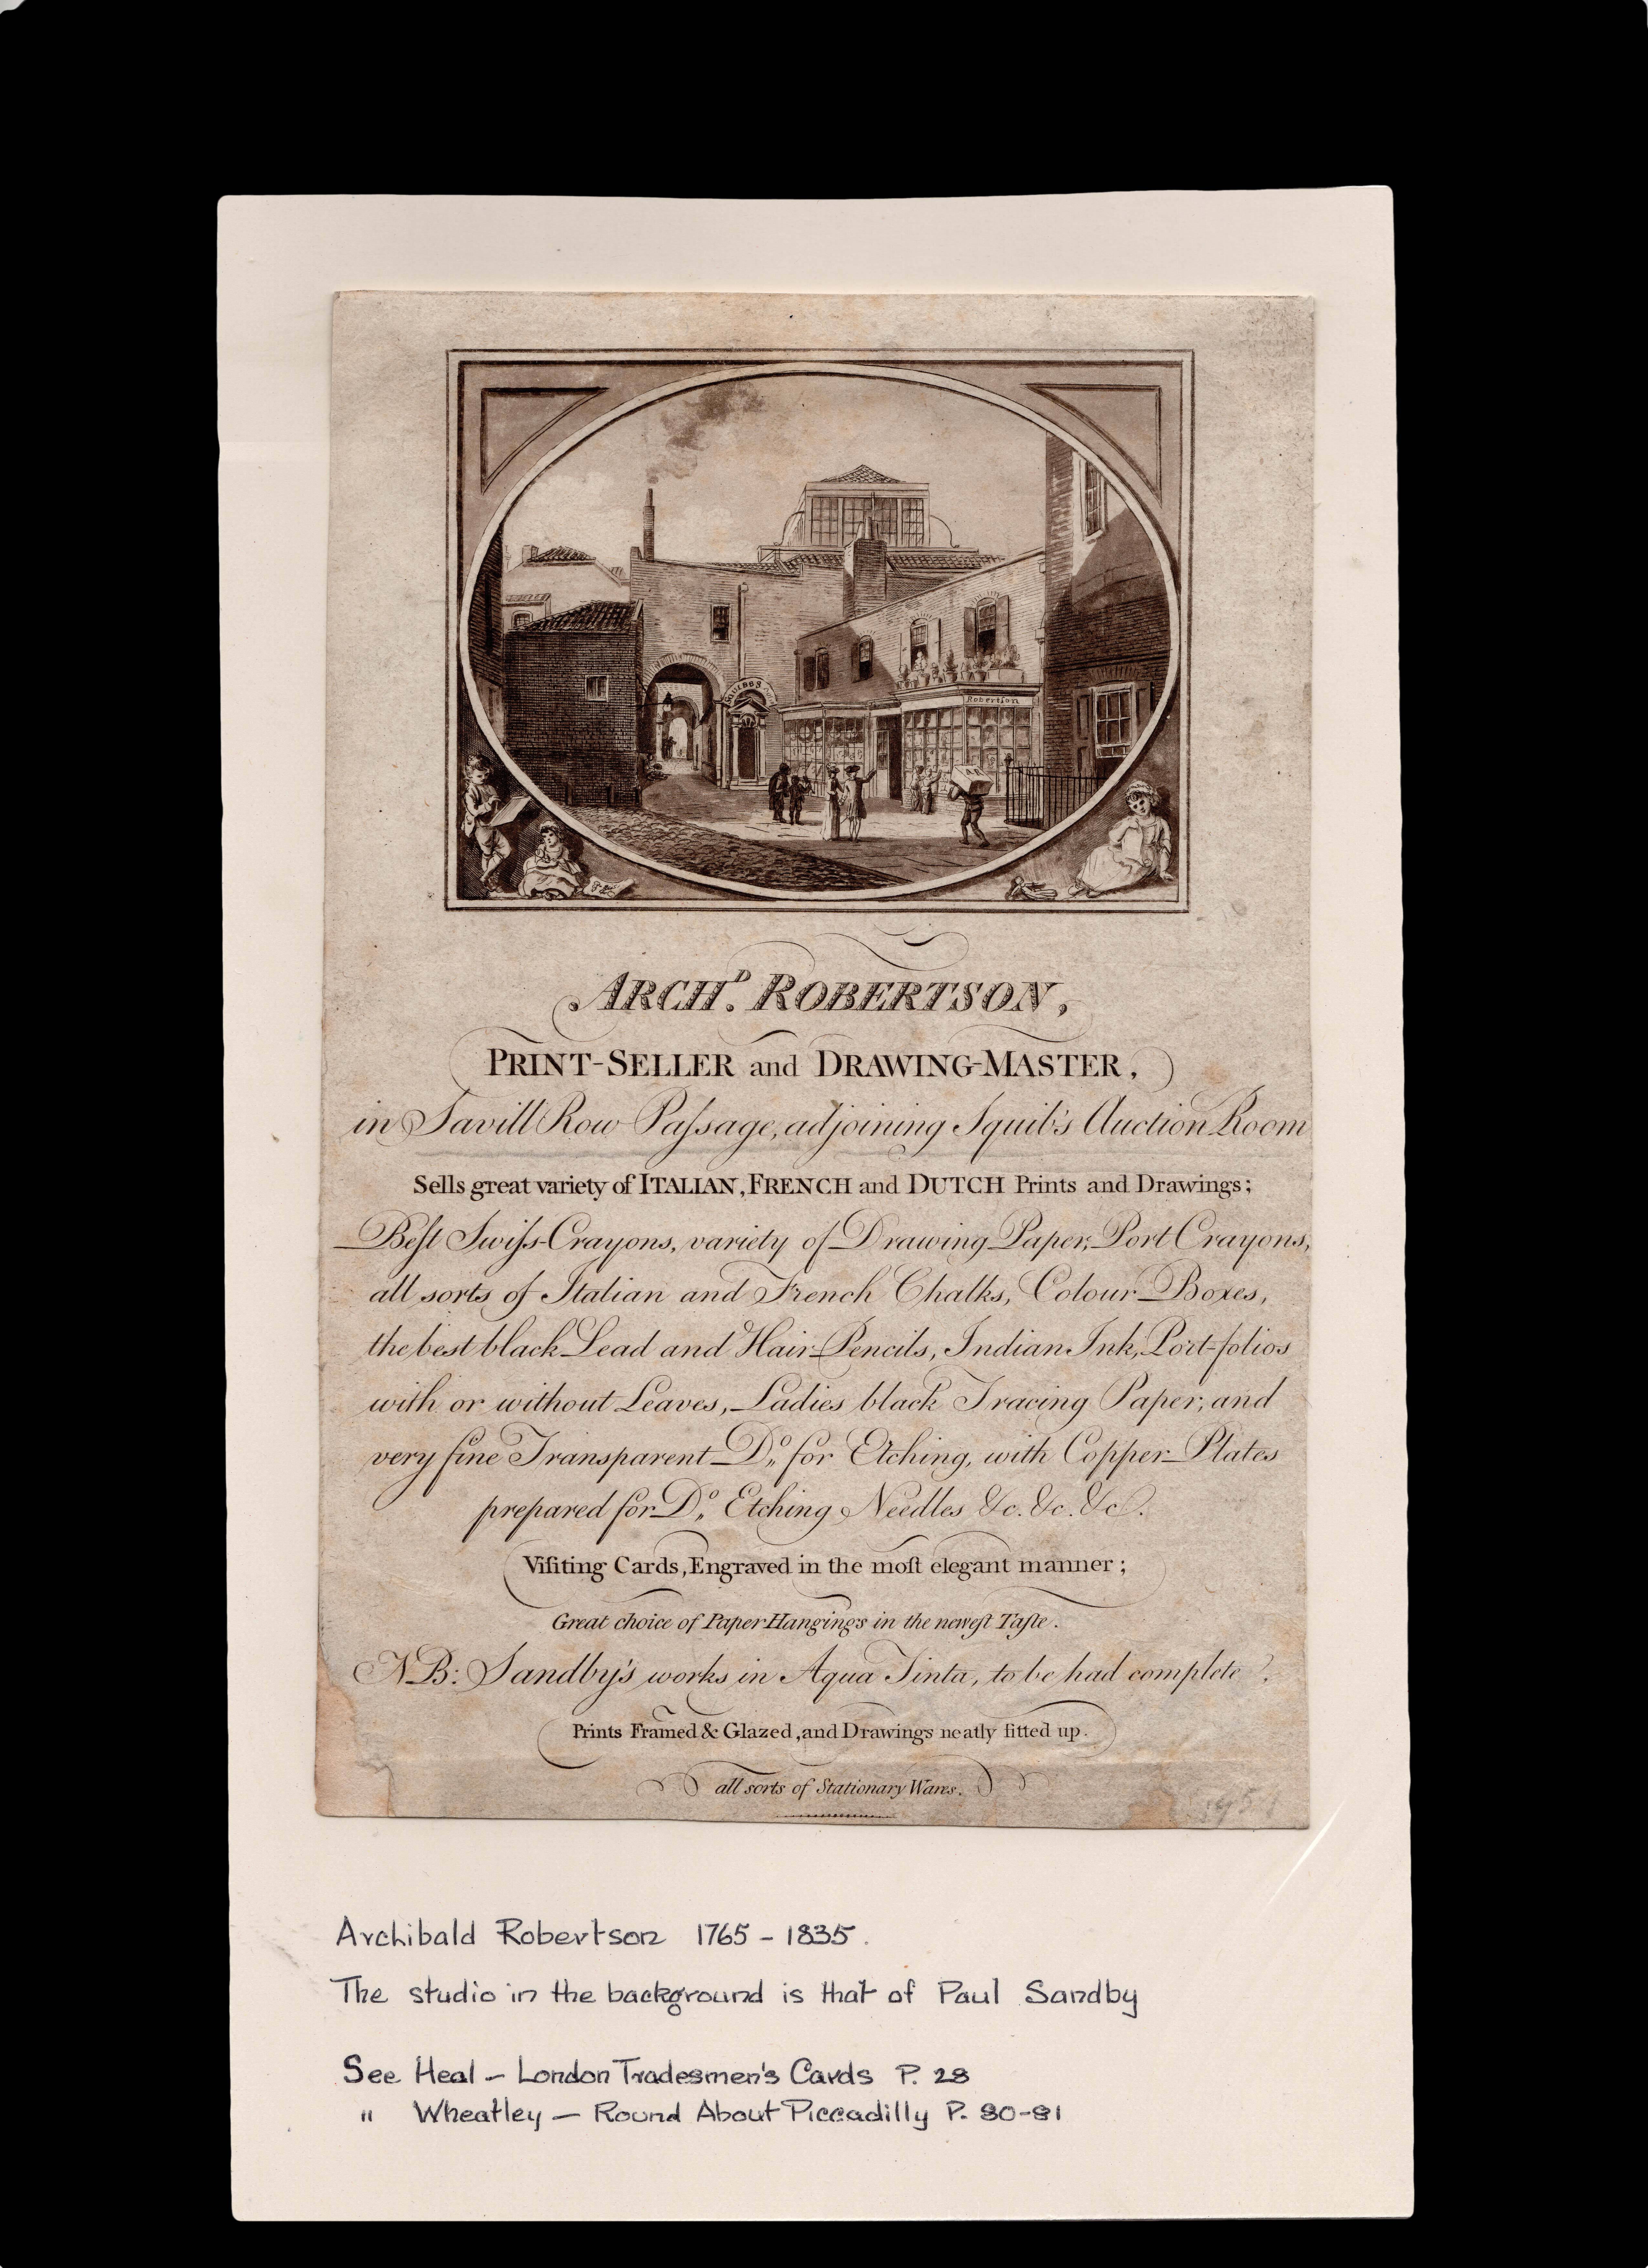 SQUIBBS
Robertson
ARCH.ᴰ ROBERTSON,
PRINT-SELLER and DRAWING-MASTER,
in Savill Row Paſsage, adjoining Squib's Auction Room
Sells great variety of ITALIAN, FRENCH and DUTCH Prints and Drawings;
Beſt Swiſs-Crayons, variety of Drawing Paper, Port Crayons,
all sorts of Italian and French Chalks, Colour Boxes,
the best black Lead and Hair Pencils, Indian Ink, Port-folios
with or without Leaves, Ladies black Tracing Paper, and
very fine Transparent Dº for Etching, with Copper Plates
prepared for Dº Etching Needles &c. &c. &c.
Viſiting Cards, Engraved in the moſt elegant manner;
Great choice of Paper Hangings in the neweſt Taſte.
NB: Sandby's works in Aqua Tinta, to be had complete.
Prints Framed & Glazed, and Drawings neatly fitted up.
all sorts of Stationary Wares.
Archibald Robertson 1765 - 1835.
The studio in the background is that of Paul Sandby
See Heal - London Tradesmen's Cards P. 28
" Wheatley - Round About Piccadilly P. 80-81